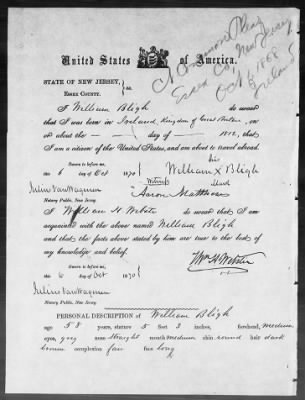 United States of America.
STATE OF NEW JERSEY,
ESSEX COUNTY. } ss.
Essex Co, New Jersey
Oct 6 1868
Ireland
I William Bligh do swear
that I was born in Ireland, Kingdom of Great Britain, on
or about the — day of — 1812, that
I am a citizen of the United States, and am about to travel abroad.
Sworn to before me,
this 6 day of Oct 1870
his
William X Bligh
mark
Witness
Aaron Matthews
Julius
Notary Public, New Jersey.
I William H Webster do swear that I am
acquainted with the above named William Bligh
and that the facts above stated by him are true to the best of
my knowledge and belief.
Sworn to before me,
this 6 day of Oct 1870
Wm H Webster
Julius
Notary Public, New Jersey.
PERSONAL DESCRIPTION of William Bligh
age 58 years, stature 5 feet 3 inches, forehead, medium
eyes, grey nose straight mouth medium chin round hair dark
brown complexion fair face long